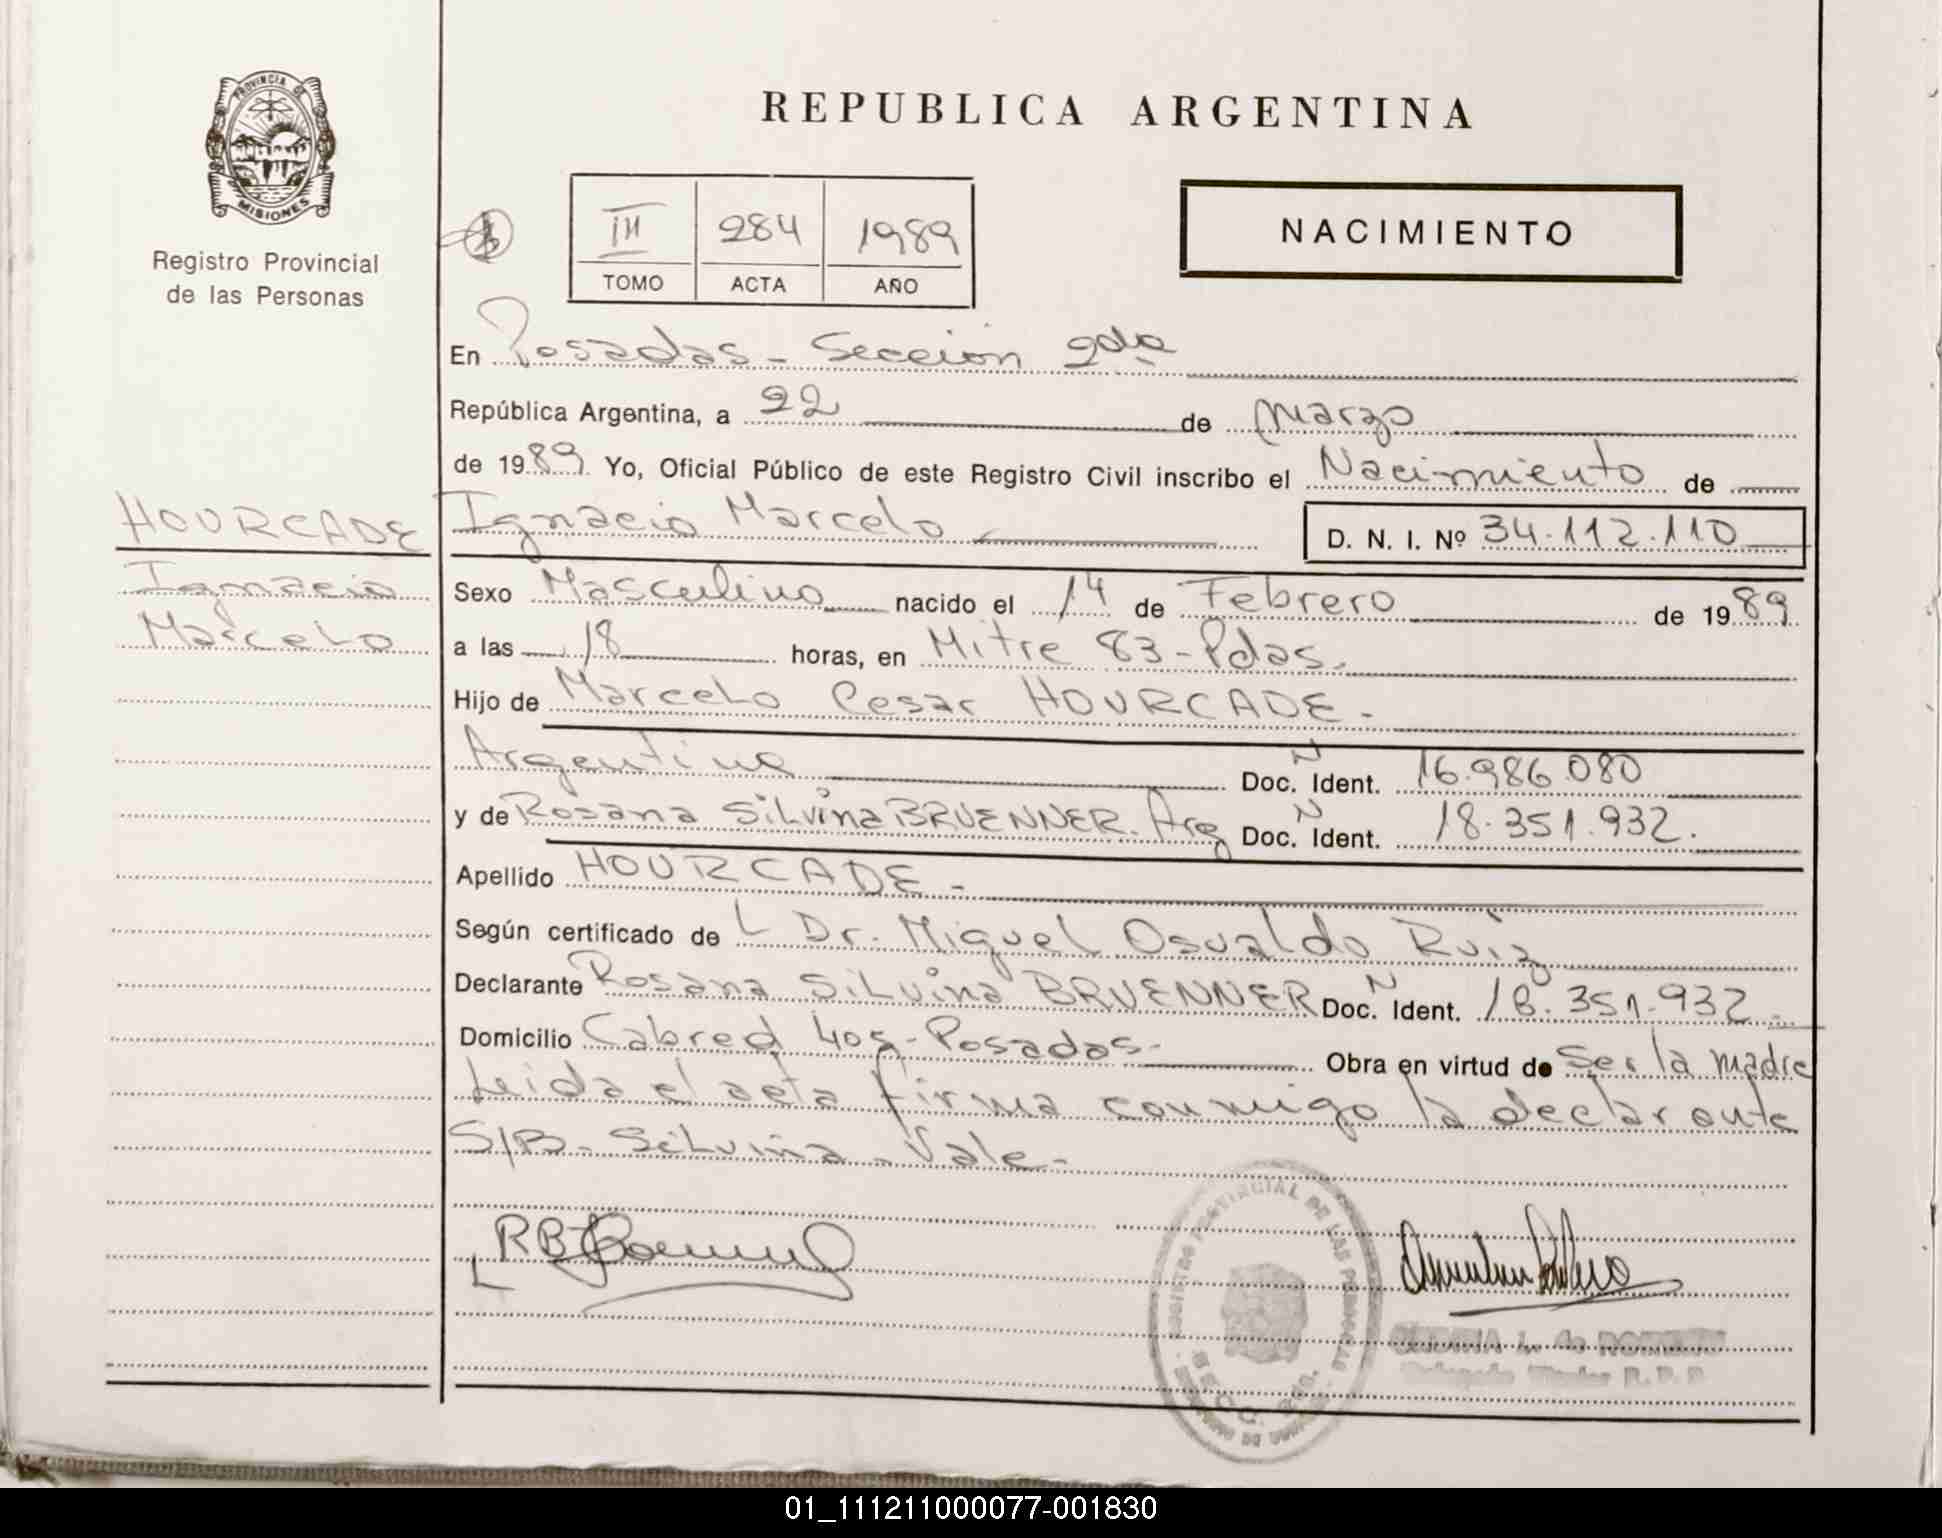 PROVINCIA DE
MISIONES
Registro Provincial
de las Personas
REPUBLICA ARGENTINA
III 284 1989
TOMO ACTA AÑO
NACIMIENTO
En Posadas - Sección 2da
República Argentina, a 22 de Marzo
de 1989 Yo, Oficial Público de este Registro Civil inscribo el Nacimiento de
HOURCADE
Ignacio
Marcelo
Ignacio Marcelo D. N. I. Nº 34.112.110
Sexo Masculino nacido el 14 de Febrero de 1989
a las 18 horas, en Mitre 83 - Pdas.
Hijo de Marcelo Cesar HOURCADE -
Argentino Doc. N Ident. 16.986.080
y de Rosana Silvina BRUENNER. Arg Doc. N Ident. 18.351.932.
Apellido HOURCADE -
Según certificado de L Dr. Miguel Osvaldo Ruiz
Declarante Rosana Silvina BRUENNER Doc. N Ident. 18.351.932
Domicilio Cabred 405 - Posadas - Obra en virtud de Ser la madre
Leida el acta firma conmigo la declarante
S/B - Silvina - Vale -
REGISTRO PROVINCIAL DE LAS PERSONAS
SECC. 2da.
L. de ROMERO
Delegado Titular R. P. P.
01_111211000077-001830